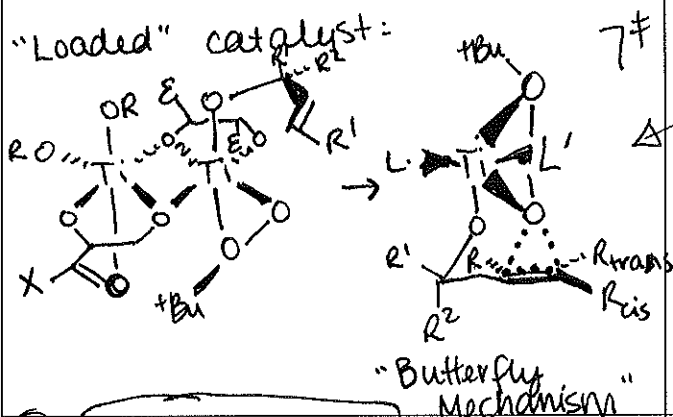 "Loaded" catalyst:
R
R²
ε
O
R¹
OR
RO
Ti
O
O
Ti
ε
O
O
O
O
O
X
O
tBu
→
tBu
O
7‡
L
Ti
L'
O
O
R¹
R
Rtrans
R²
Rcis
"Butterfly
Mechanism"